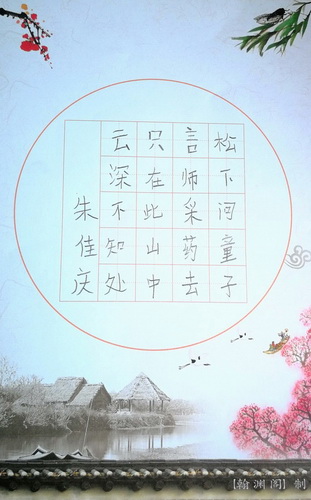 松下问童子
言师采药去
只在此山中
云深不知处
朱佳庆
【翰渊阁】制